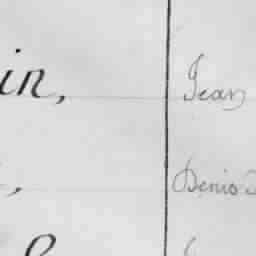 in, Jean
, Denis